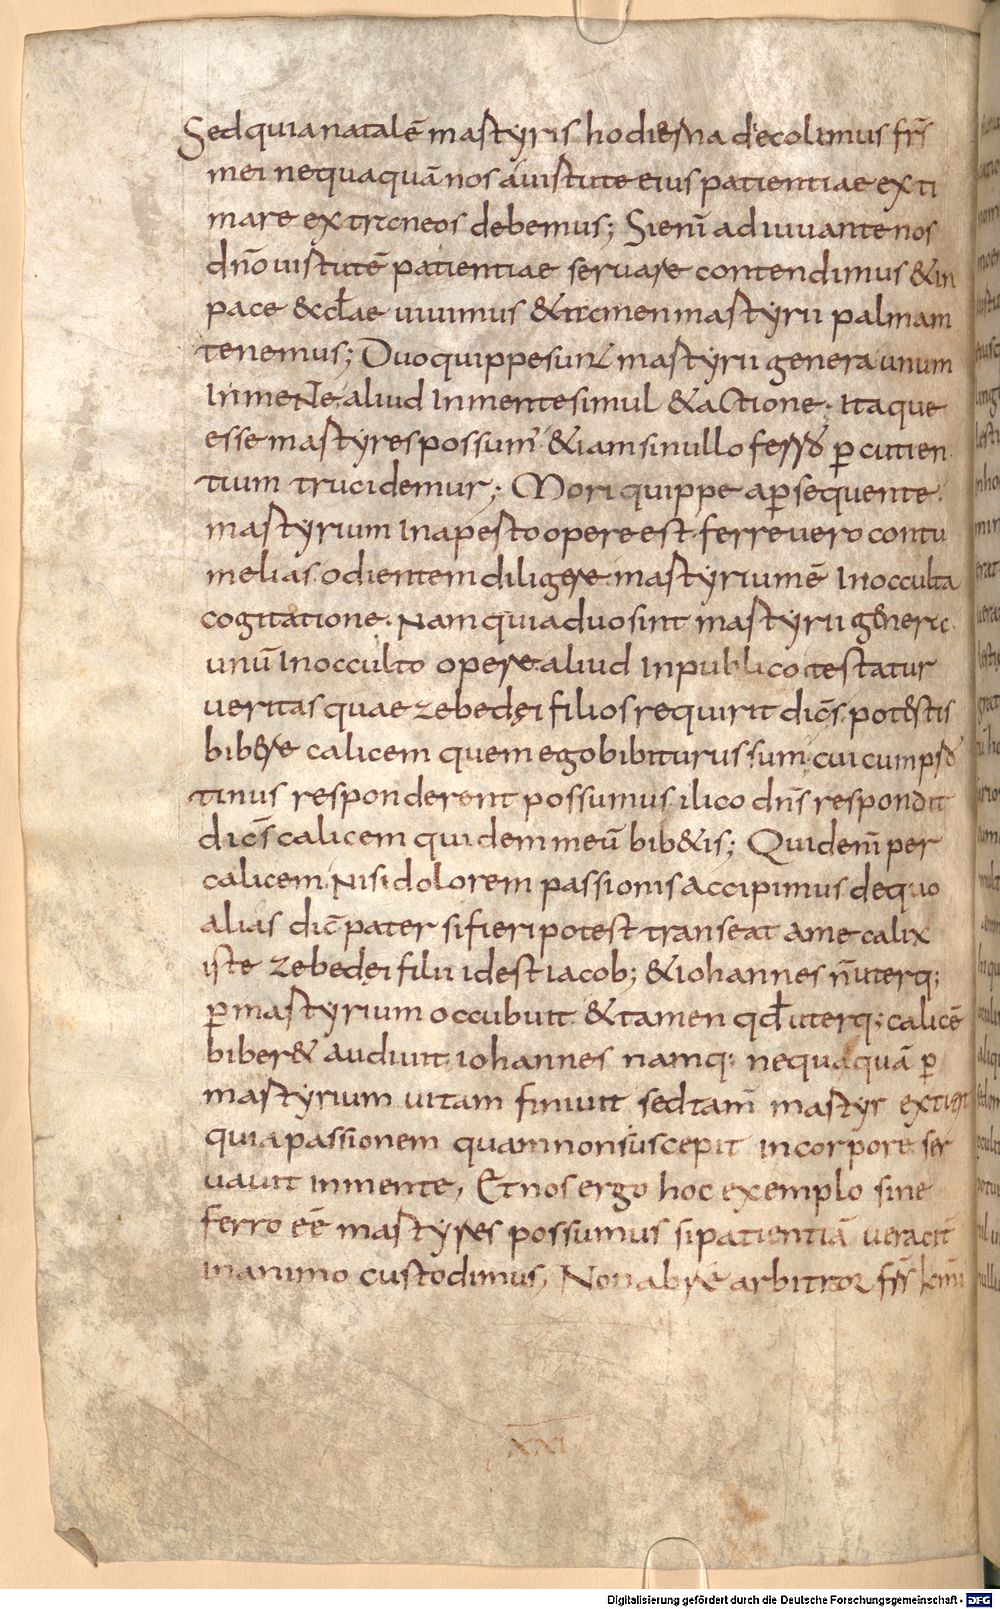 Sed quia natalē martyris hodierna die colimus frs̄
mei nequaquā nos a uirtute eius patientiae exti
mare extraneos debemus; Si enī adiuuante nos
dn̄o uirtutē patientiae seruare contendimus & in
pace eccl̄ae uiuimus & tamen martyrii palmam
tenemus; Duo quippe sunt martyrii genera unum
in mente aliud in mente simul & actione. Itaque
esse martyres possum' & iam si nullo ferro ꝑcutien
tium trucidemur; Mori quippe a ꝑsequente.
martyrium in aperto opere est. ferre uero contu
melias. odientem diligere. martyrium ē in occulta
cogitatione. Nam quia duo sint martyrii genera.
unū in occulto opere. aliud in publico testatur
ueritas quae zebedęi filios requirit dicēs. potestis
bibere calicem quem ego bibiturus sum. cui cum pro
tinus responderent possumus. ilico dn̄s respondit
dicēs calicem quidem meū bib&is; Quid enī per
calicem. Nisi dolorem passionis accipimus de quo
alias dic̄ pater si fieri potest transeat a me calix
iste zebedęi filii id est iacob; & iohannes n̄ uterq;
ꝑ martyrium occubuit. & tamen qd̄ uterq; calicē
biber& audiuit. iohannes namq; nequaquā ꝑ
martyrium uitam finiuit sed tam̄ martyr extitit
quia passionem quam non suscepit in corpore. ser
uauit in mente, Et nos ergo hoc exemplo sine
ferro eē martyres possumus si patientiā ueracit̄
in animo custodimus, Non ab re arbitror frs̄
XXI
Digitalisierung gefördert durch die Deutsche Forschungsgemeinschaft - DFG